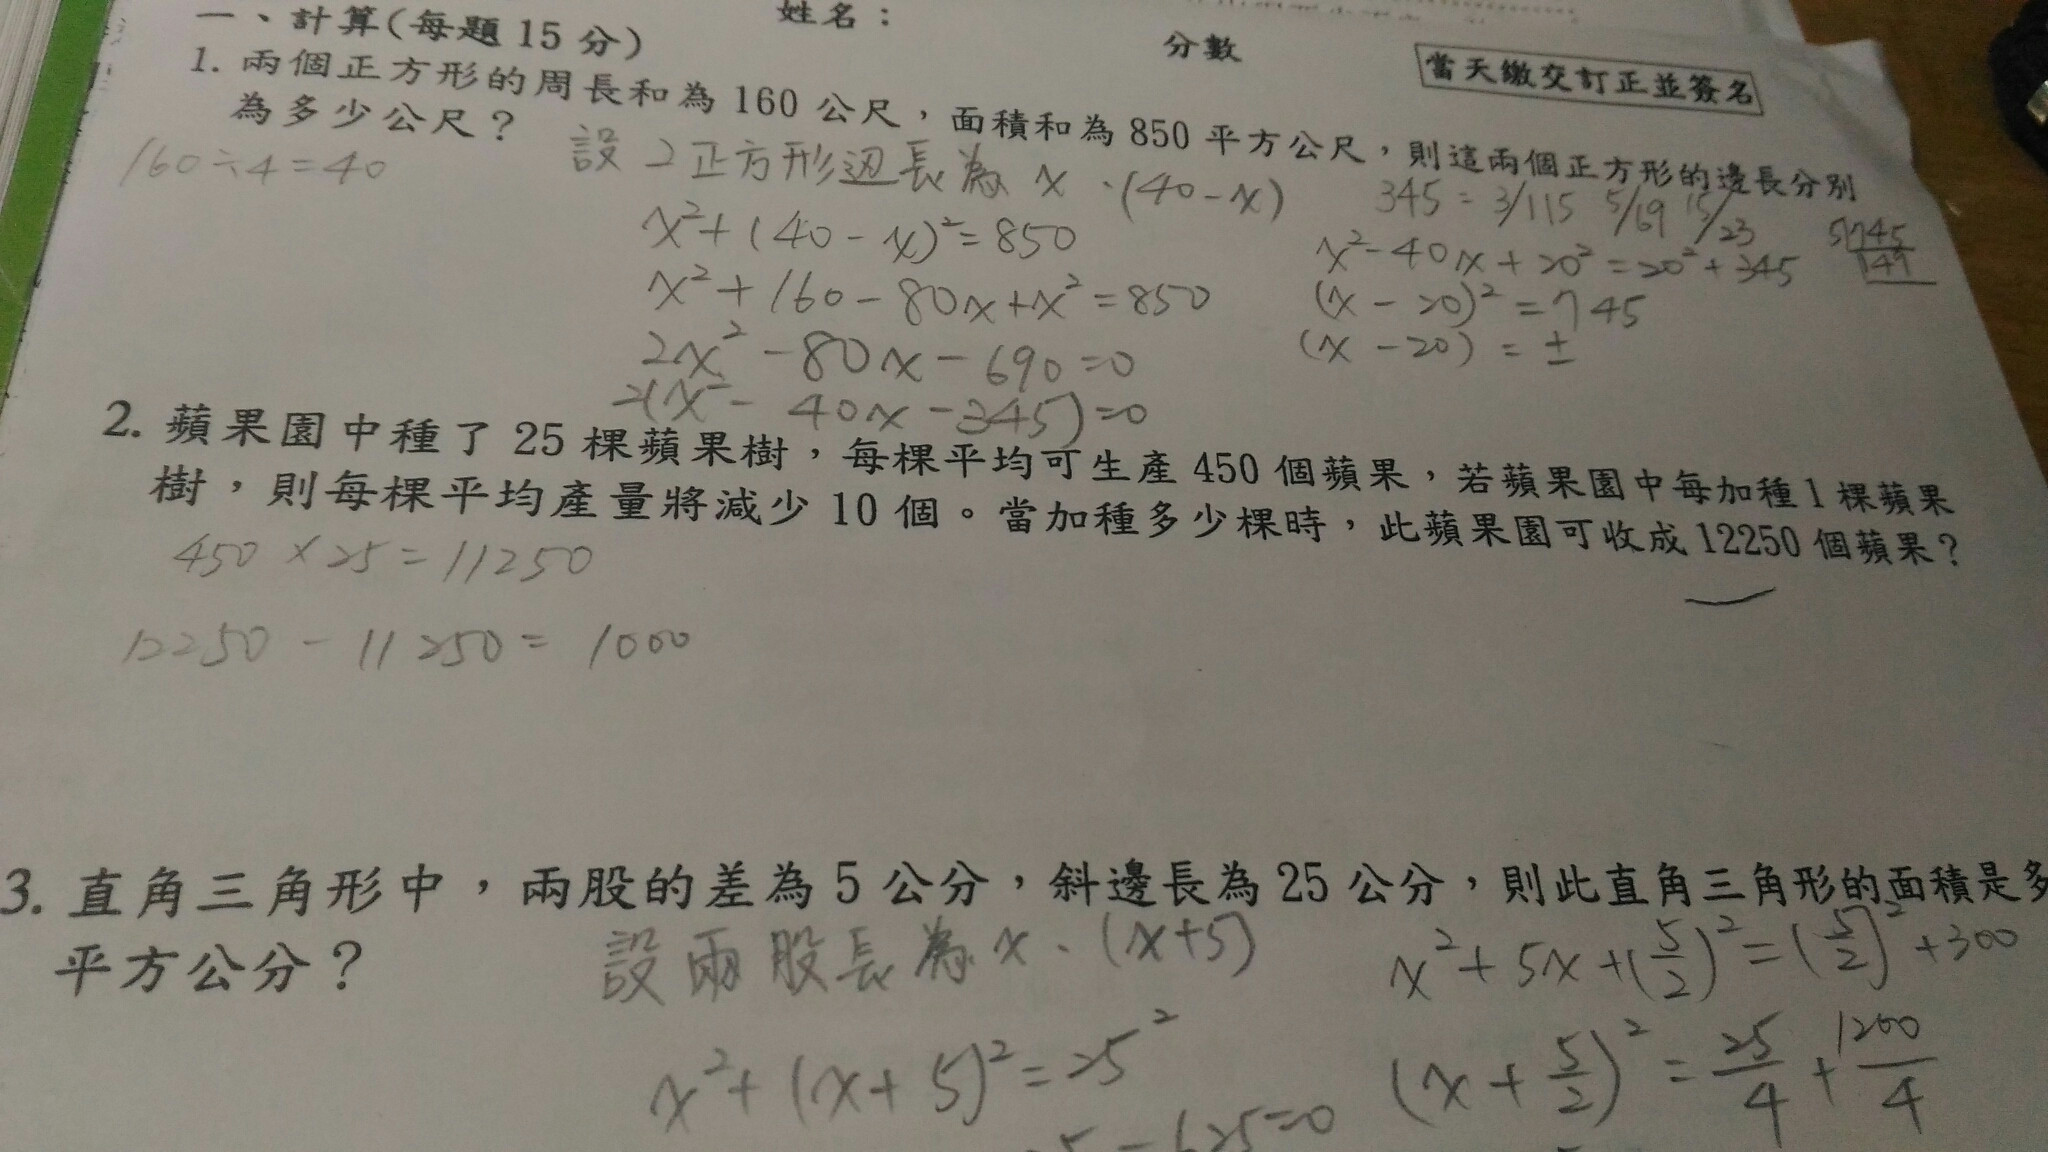 一、計算(每題15分)
姓名：
分數
當天繳交訂正並簽名
1. 兩個正方形的周長和為160公尺，面積和為850平方公尺，則這兩個正方形的邊長分別
為多少公尺？
160÷4=40
設2正方形边長為 x、(40-x)
x²+(40-x)²=850
x²+160-80x+x²=850
2x²-80x-690=0
2(x²-40x-345)=0
345=3/115 5/69 15/23
x²-40x+20²=20²+345
(x-20)²=745
(x-20)=±
5)745
149
2. 蘋果園中種了25棵蘋果樹，每棵平均可生產450個蘋果，若蘋果園中每加種1棵蘋果
樹，則每棵平均產量將減少10個。當加種多少棵時，此蘋果園可收成12250個蘋果？
450×25=11250
12250-11250=1000
3. 直角三角形中，兩股的差為5公分，斜邊長為25公分，則此直角三角形的面積是多
平方公分？
設兩股長為 x、(x+5)
x²+(x+5)²=25²
-625=0
x²+5x+(5/2)²=(5/2)²+300
(x+5/2)²=25/4+1200/4